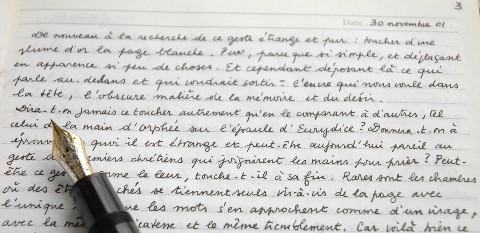 3
Date 30 novembre 01
De nouveau à la recherche de ce geste étrange et pur : toucher d'une
plume d'or la page blanche. Pur, parce que si simple, et déplaçant
en apparence si peu de choses. Et cependant déposant là ce qui
parle au-dedans et qui voudrait sortir : l'encre qui nous roule dans
la tête, l'obscure matière de la mémoire et du désir.
Dira-t-on jamais ce toucher autrement qu'en le comparant à d'autres, tel
celui de la main d'Orphée sur l'épaule d'Eurydice ? Donnera-t-on à
qu'il est étrange et peut-être aujourd'hui pareil au
geste premiers chrétiens qui joignirent les mains pour prier ? Peut-
être ce comme le leur, touche-t-il à sa fin. Rares sont les chambres
où des se tiennent seuls vis-à-vis de la page avec
l'unique que les mots s'en approchent comme d'un visage,
avec la même et le même tremblement. Car voilà bien ce